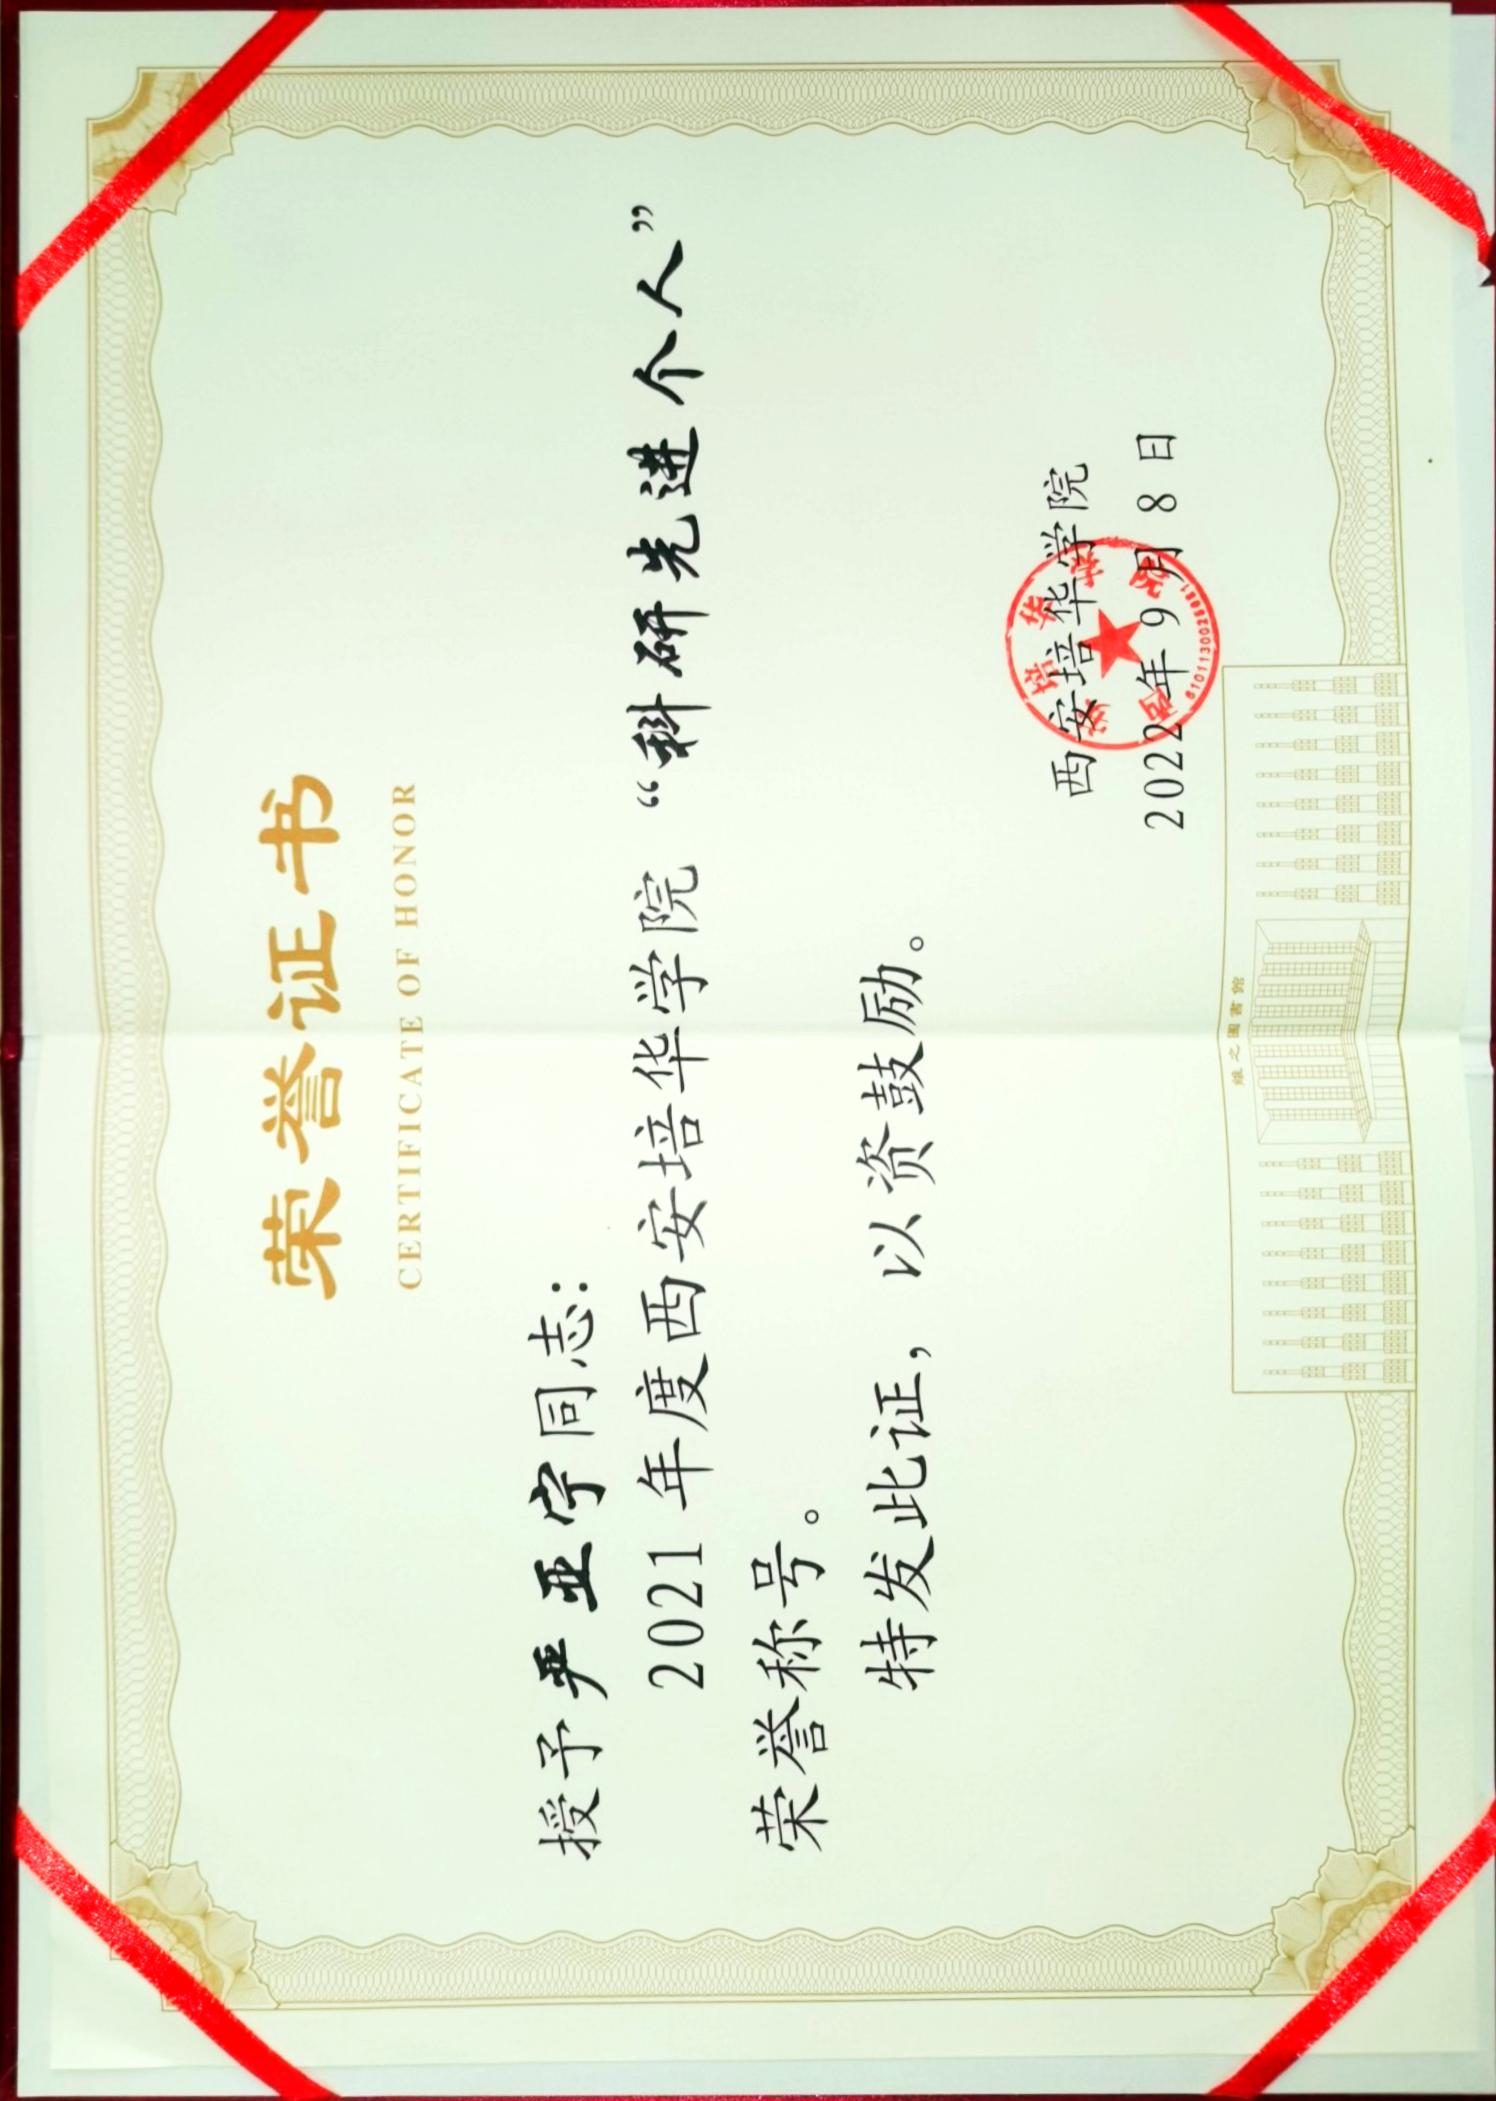 荣誉证书
CERTIFICATE OF HONOR
授予严亚宁同志：
2021年度西安培华学院“科研先进个人”
荣誉称号。
特发此证，以资鼓励。
西安培华学院
2022年9月8日
西安培华学院
维之图書館